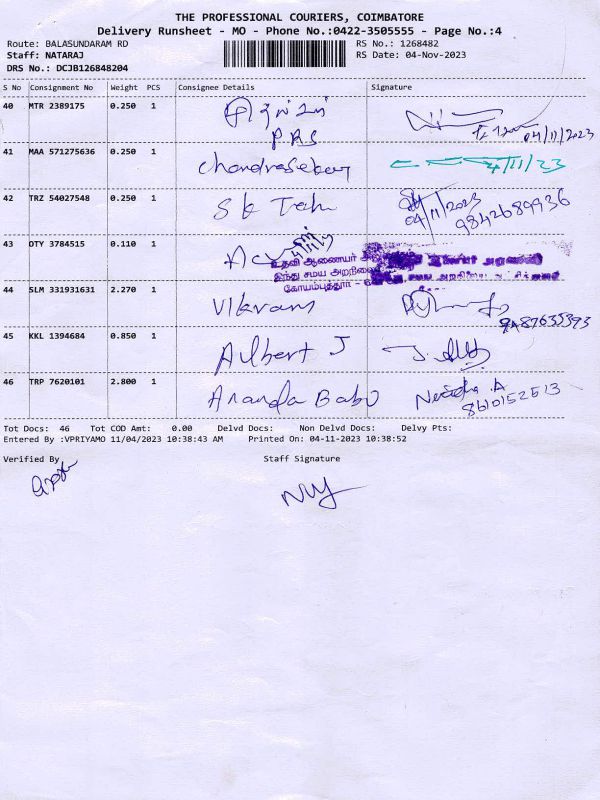 THE PROFESSIONAL COURIERS, COIMBATORE
Delivery Runsheet - MO - Phone No.:0422-3505555 - Page No.:4
Route: BALASUNDARAM RD RS No.: 1268482
Staff: NATARAJ RS Date: 04-Nov-2023
DRS No.: DCJB126848204
S No Consignment No Weight PCS Consignee Details Signature
40 MTR 2389175 0.250 1
04/11/2023
P.R.S
41 MAA 571275636 0.250 1 Chandrasekar 4/11/23
42 TRZ 54027548 0.250 1 04/11/2023
9842689936
43 OTY 3784515 0.110 1 AC
உதவி ஆணையர்
இந்து சமய அறநிலைய
கோயம்புத்தூர்
44 SLM 331931631 2.270 1 Vikram
9487635393
45 KKL 1394684 0.850 1 Aulbert J
46 TRP 7620101 2.800 1 Ananda Babu
8610152513
Tot Docs: 46 Tot COD Amt: 0.00 Delvd Docs: Non Delvd Docs: Delvy Pts:
Entered By :VPRIYAMO 11/04/2023 10:38:43 AM Printed On: 04-11-2023 10:38:52
Verified By Staff Signature